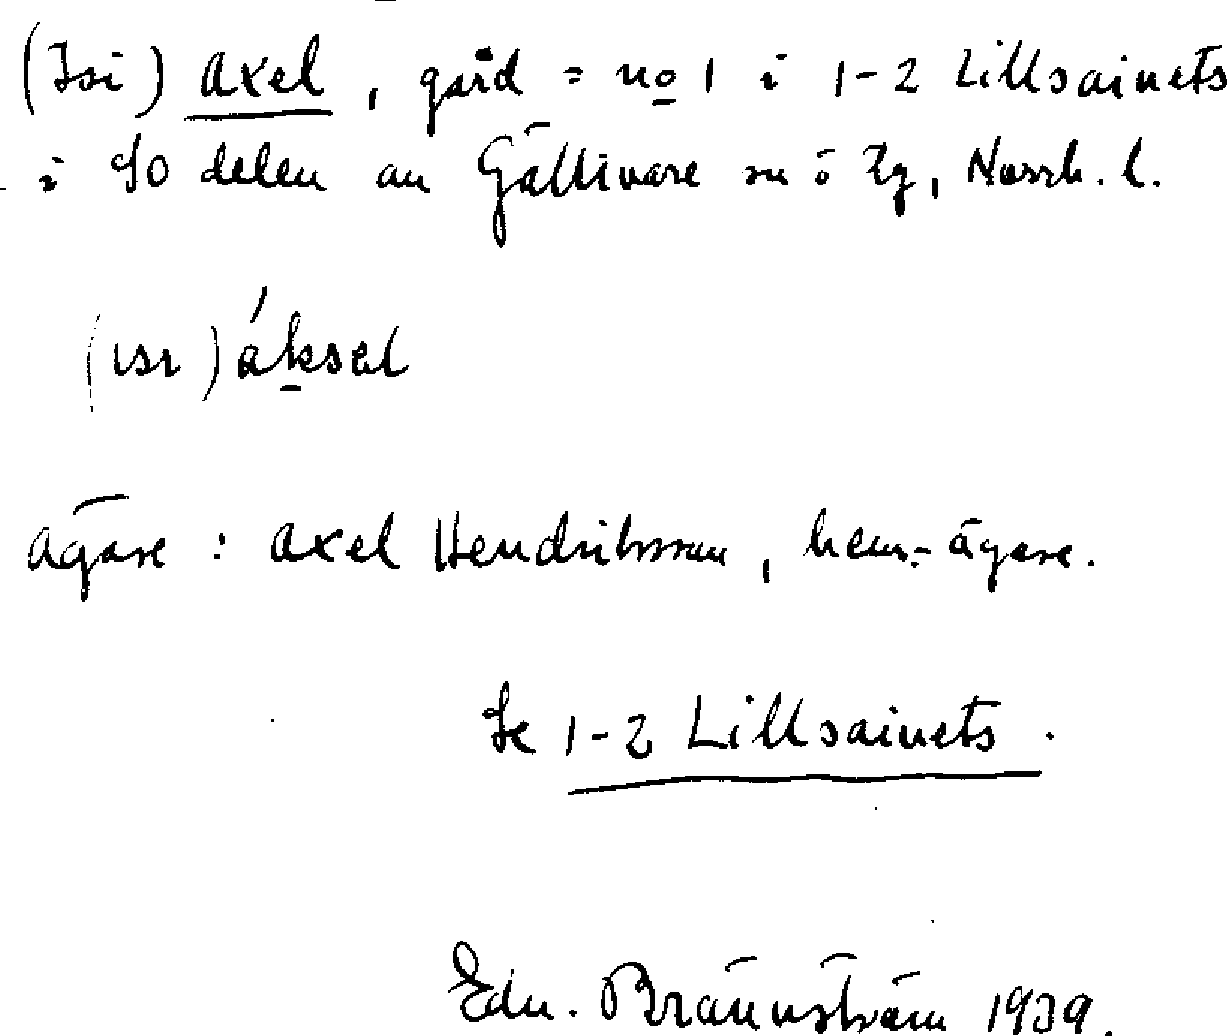 (Isi) Axel, gård = no 1 i 1-2 Lillsaivets
i SO delen av Gällivare sn ö lg, Norrb. l.
(ısı) áksel
Ägare: Axel Hendriksson, hem.-ägare.
Se 1-2 Lillsaivets.
Edv. Brännström 1939.